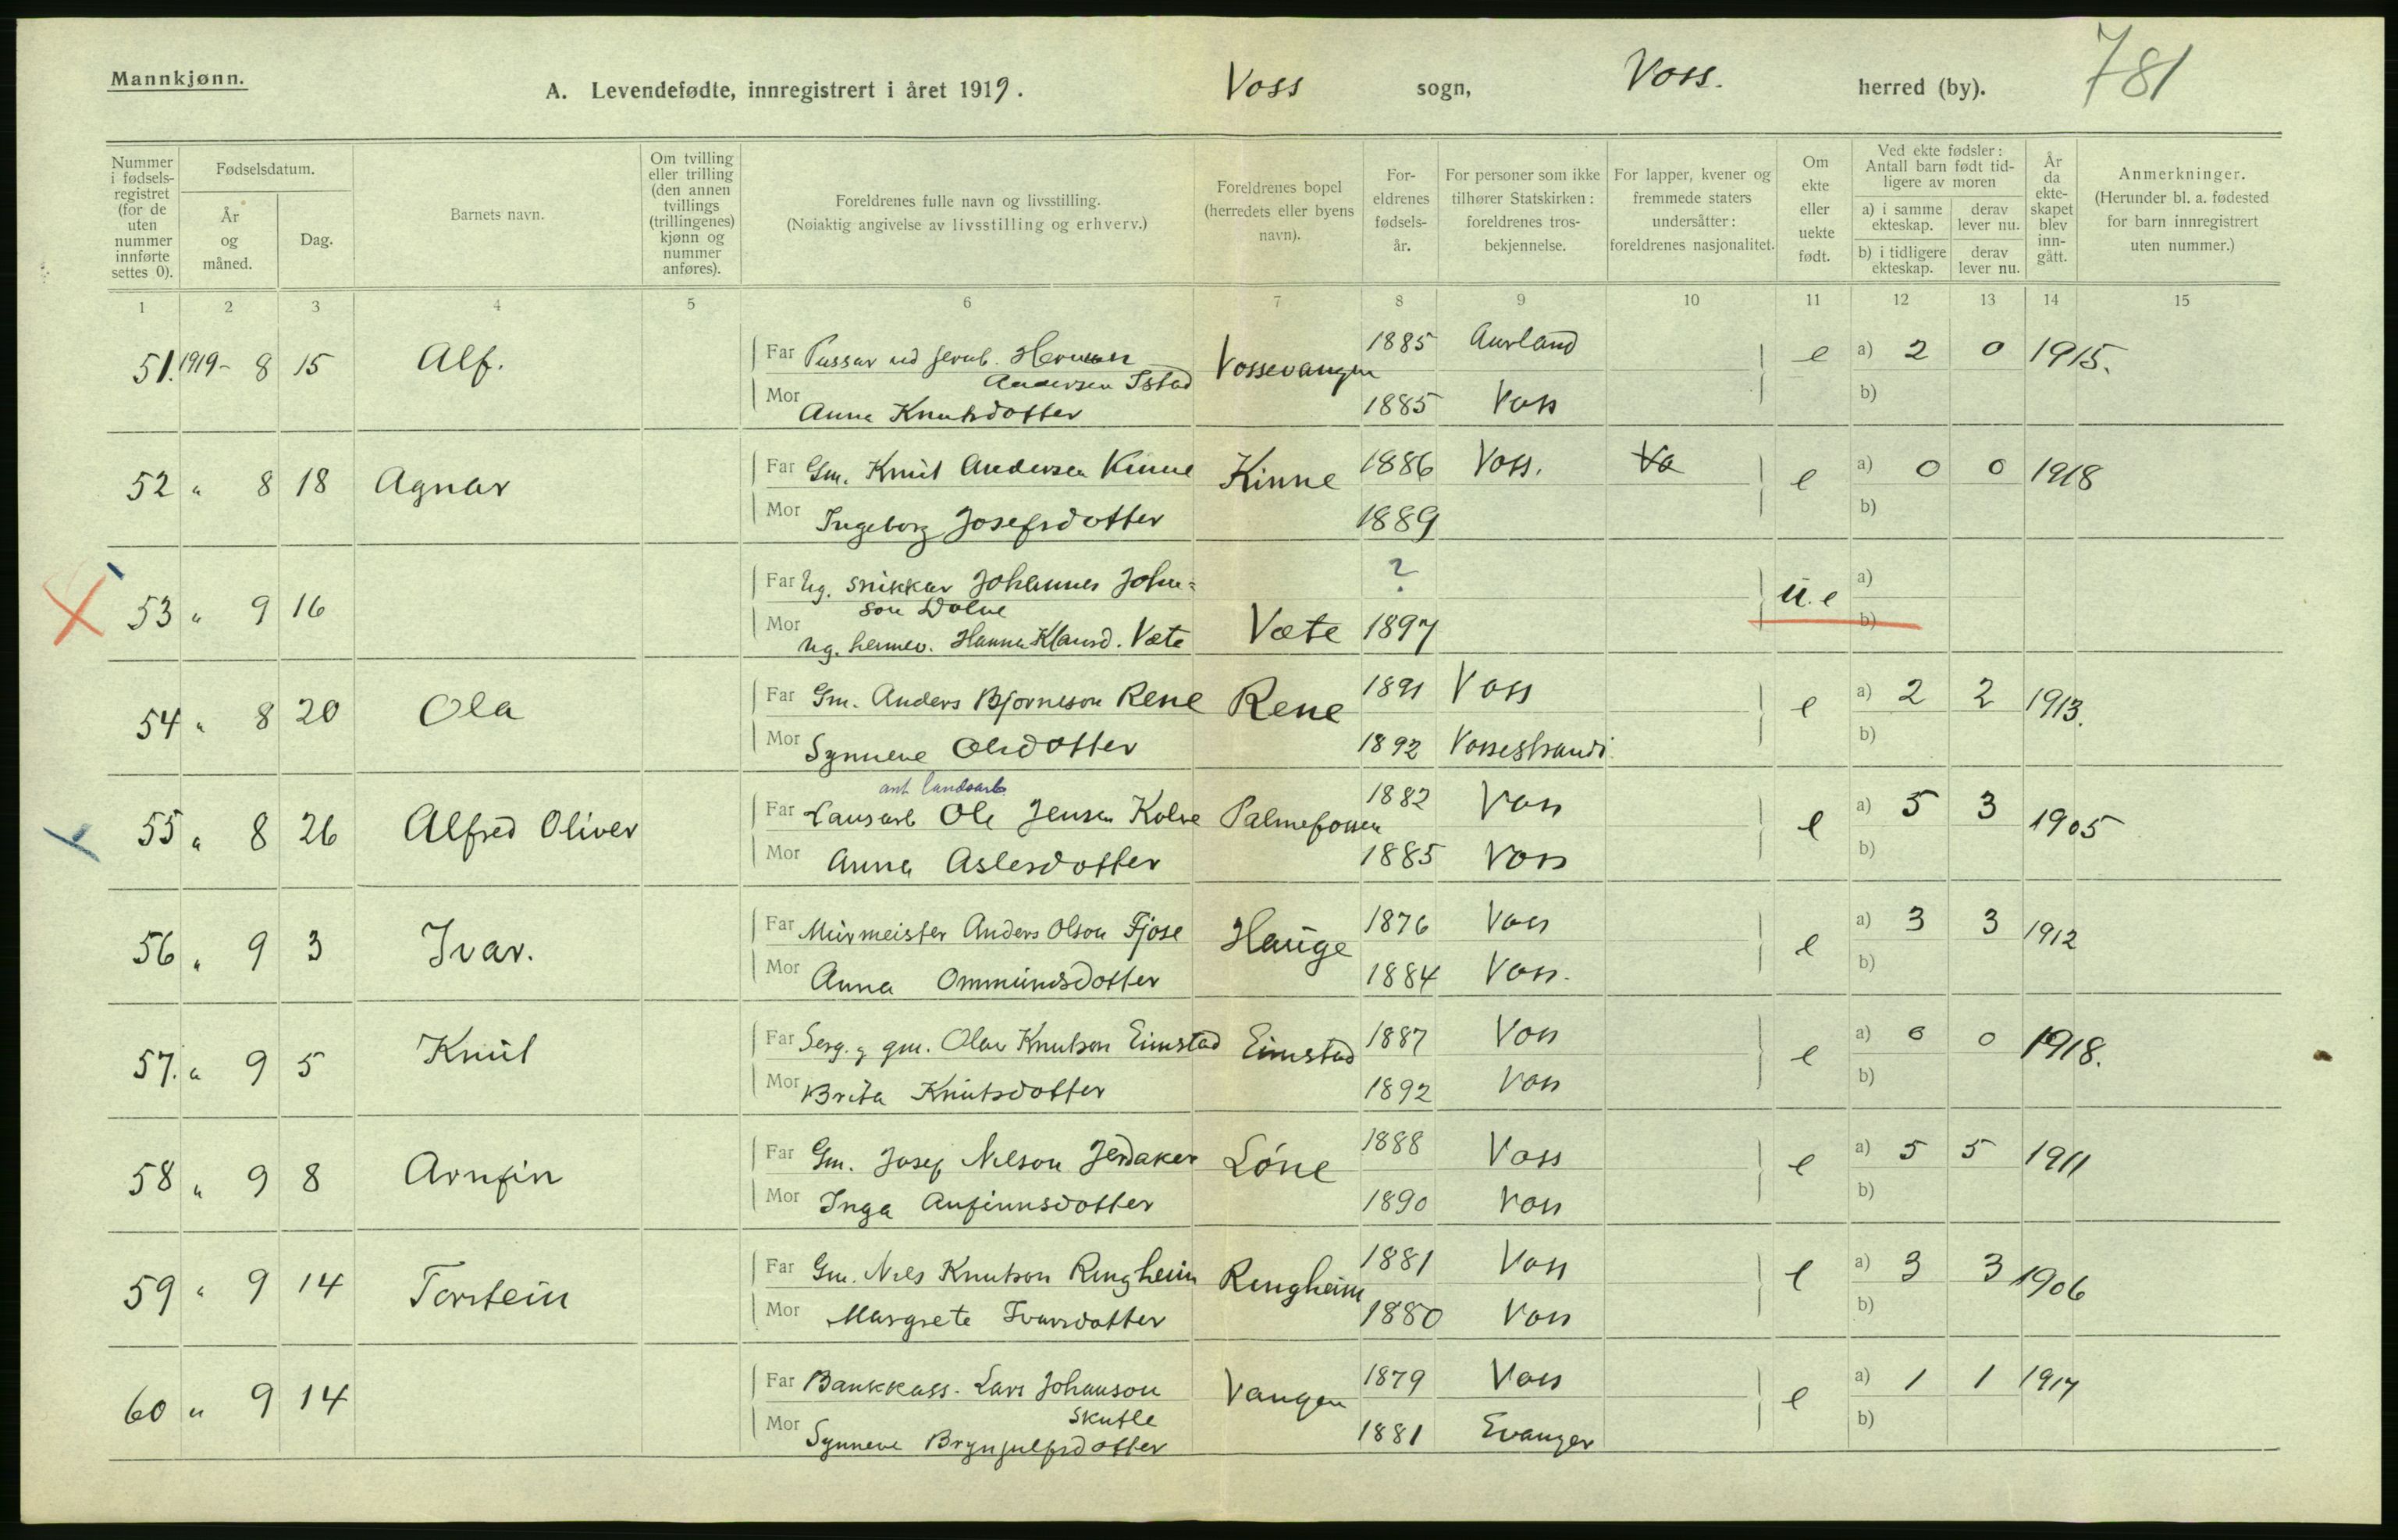 Mannkjønn.
A. Levendefødte, innregistrert i året 1919.
Voss sogn, Voss. herred (by).
781
Nummer i fødsels-registret (for de uten nummer innførte settes 0).
Fødselsdatum.
År og måned.
Dag.
Barnets navn.
Om tvilling eller trilling (den annen tvillings (trillingenes) kjønn og nummer anføres).
Foreldrenes fulle navn og livsstilling.
(Nøiaktig angivelse av livsstilling og erhverv.)
Foreldrenes bopel (herredets eller byens navn).
For-eldrenes fødsels-år.
For personer som ikke tilhører Statskirken: foreldrenes tros-bekjennelse.
For lapper, kvener og fremmede staters undersåtter: foreldrenes nasjonalitet.
Om ekte eller uekte født.
Ved ekte fødsler: Antall barn født tid-ligere av moren
a) i samme ekteskap. derav lever nu.
b) i tidligere ekteskap. derav lever nu.
År da ekte-skapet blev inn-gått.
Anmerkninger.
(Herunder bl. a. fødested for barn innregistrert uten nummer.)
1 2 3 4 5 6 7 8 9 10 11 12 13 14 15
51. 1919- 8 15 Alf. Far Passar ved jernb. Herman Vossevangen 1885 Aurland e a) 2 0 1915.
Andersen Istad
Mor Anna Knutsdotter 1885 Voss b)
52 " 8 18 Agnar Far Gm. Knut Andersen Kinne Kinne 1886 Voss. Vo e a) 0 0 1918
Mor Ingeborg Josefsdotter 1889 b)
53 " 9 16 Far Ug. snikkar Johannes John= ? u.e a)
son Dolve
Mor ug. heimev. Hanna Klausd. Væte Væte 1897 b)
54 " 8 20 Ola Far Gm. Anders Bjorneson Rene Rene 1891 Voss e a) 2 2 1913.
Mor Synneve Olsdotter 1892 Vossestrandi b)
ant landsarb.
55 " 8 26 Alfred Oliver Far Lausarb Ole Jensen Kolve Palmefossen 1882 Voss e a) 5 3 1905
Mor Anna Aslesdotter 1885 Voss b)
56 " 9 3 Ivar. Far Murmeister Anders Olson Fjose Hauge 1876 Voss e a) 3 3 1912
Mor Anna Ommundsdotter 1884 Voss. b)
57. " 9 5 Knut Far Serg. g gm. Olav Knutson Eimstad Eimstad 1887 Voss e a) 0 0 1918.
Mor Brita Knutsdotter 1892 Voss b)
58 " 9 8 Arnfin Far Gm. Josef Nilson Jerdaker Lóne 1888 Voss e a) 5 5 1911
Mor Inga Anfinnsdotter 1890 Voss b)
59 " 9 14 Torstein Far Gm. Nils Knutson Ringheim Ringheim 1881 Voss e a) 3 3 1906
Mor Margrete Ivarsdotter 1880 Voss b)
60 " 9 14 Far Bankkass. Lars Johanson Vangen 1879 Voss e a) 1 1 1917
Skutle
Mor Synneve Brynjulfsdotter 1881 Evanger b)